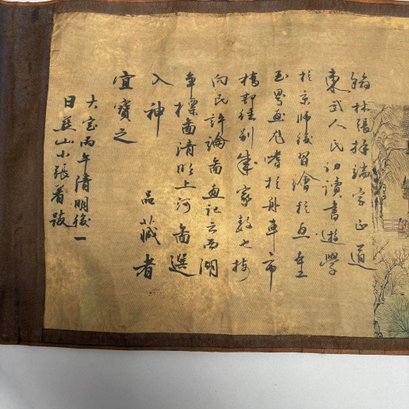 翰林張擇端字正道
東武人氏幼讀書遊學
於京師後習繪於
界畫尤嗜於舟車市
橋郭徑別成家數也按
向氏評論圖畫記云西湖
爭標圖清明上河圖選
入神品藏者
宜寶之
大定丙午清明後一
日燕山小張着跋